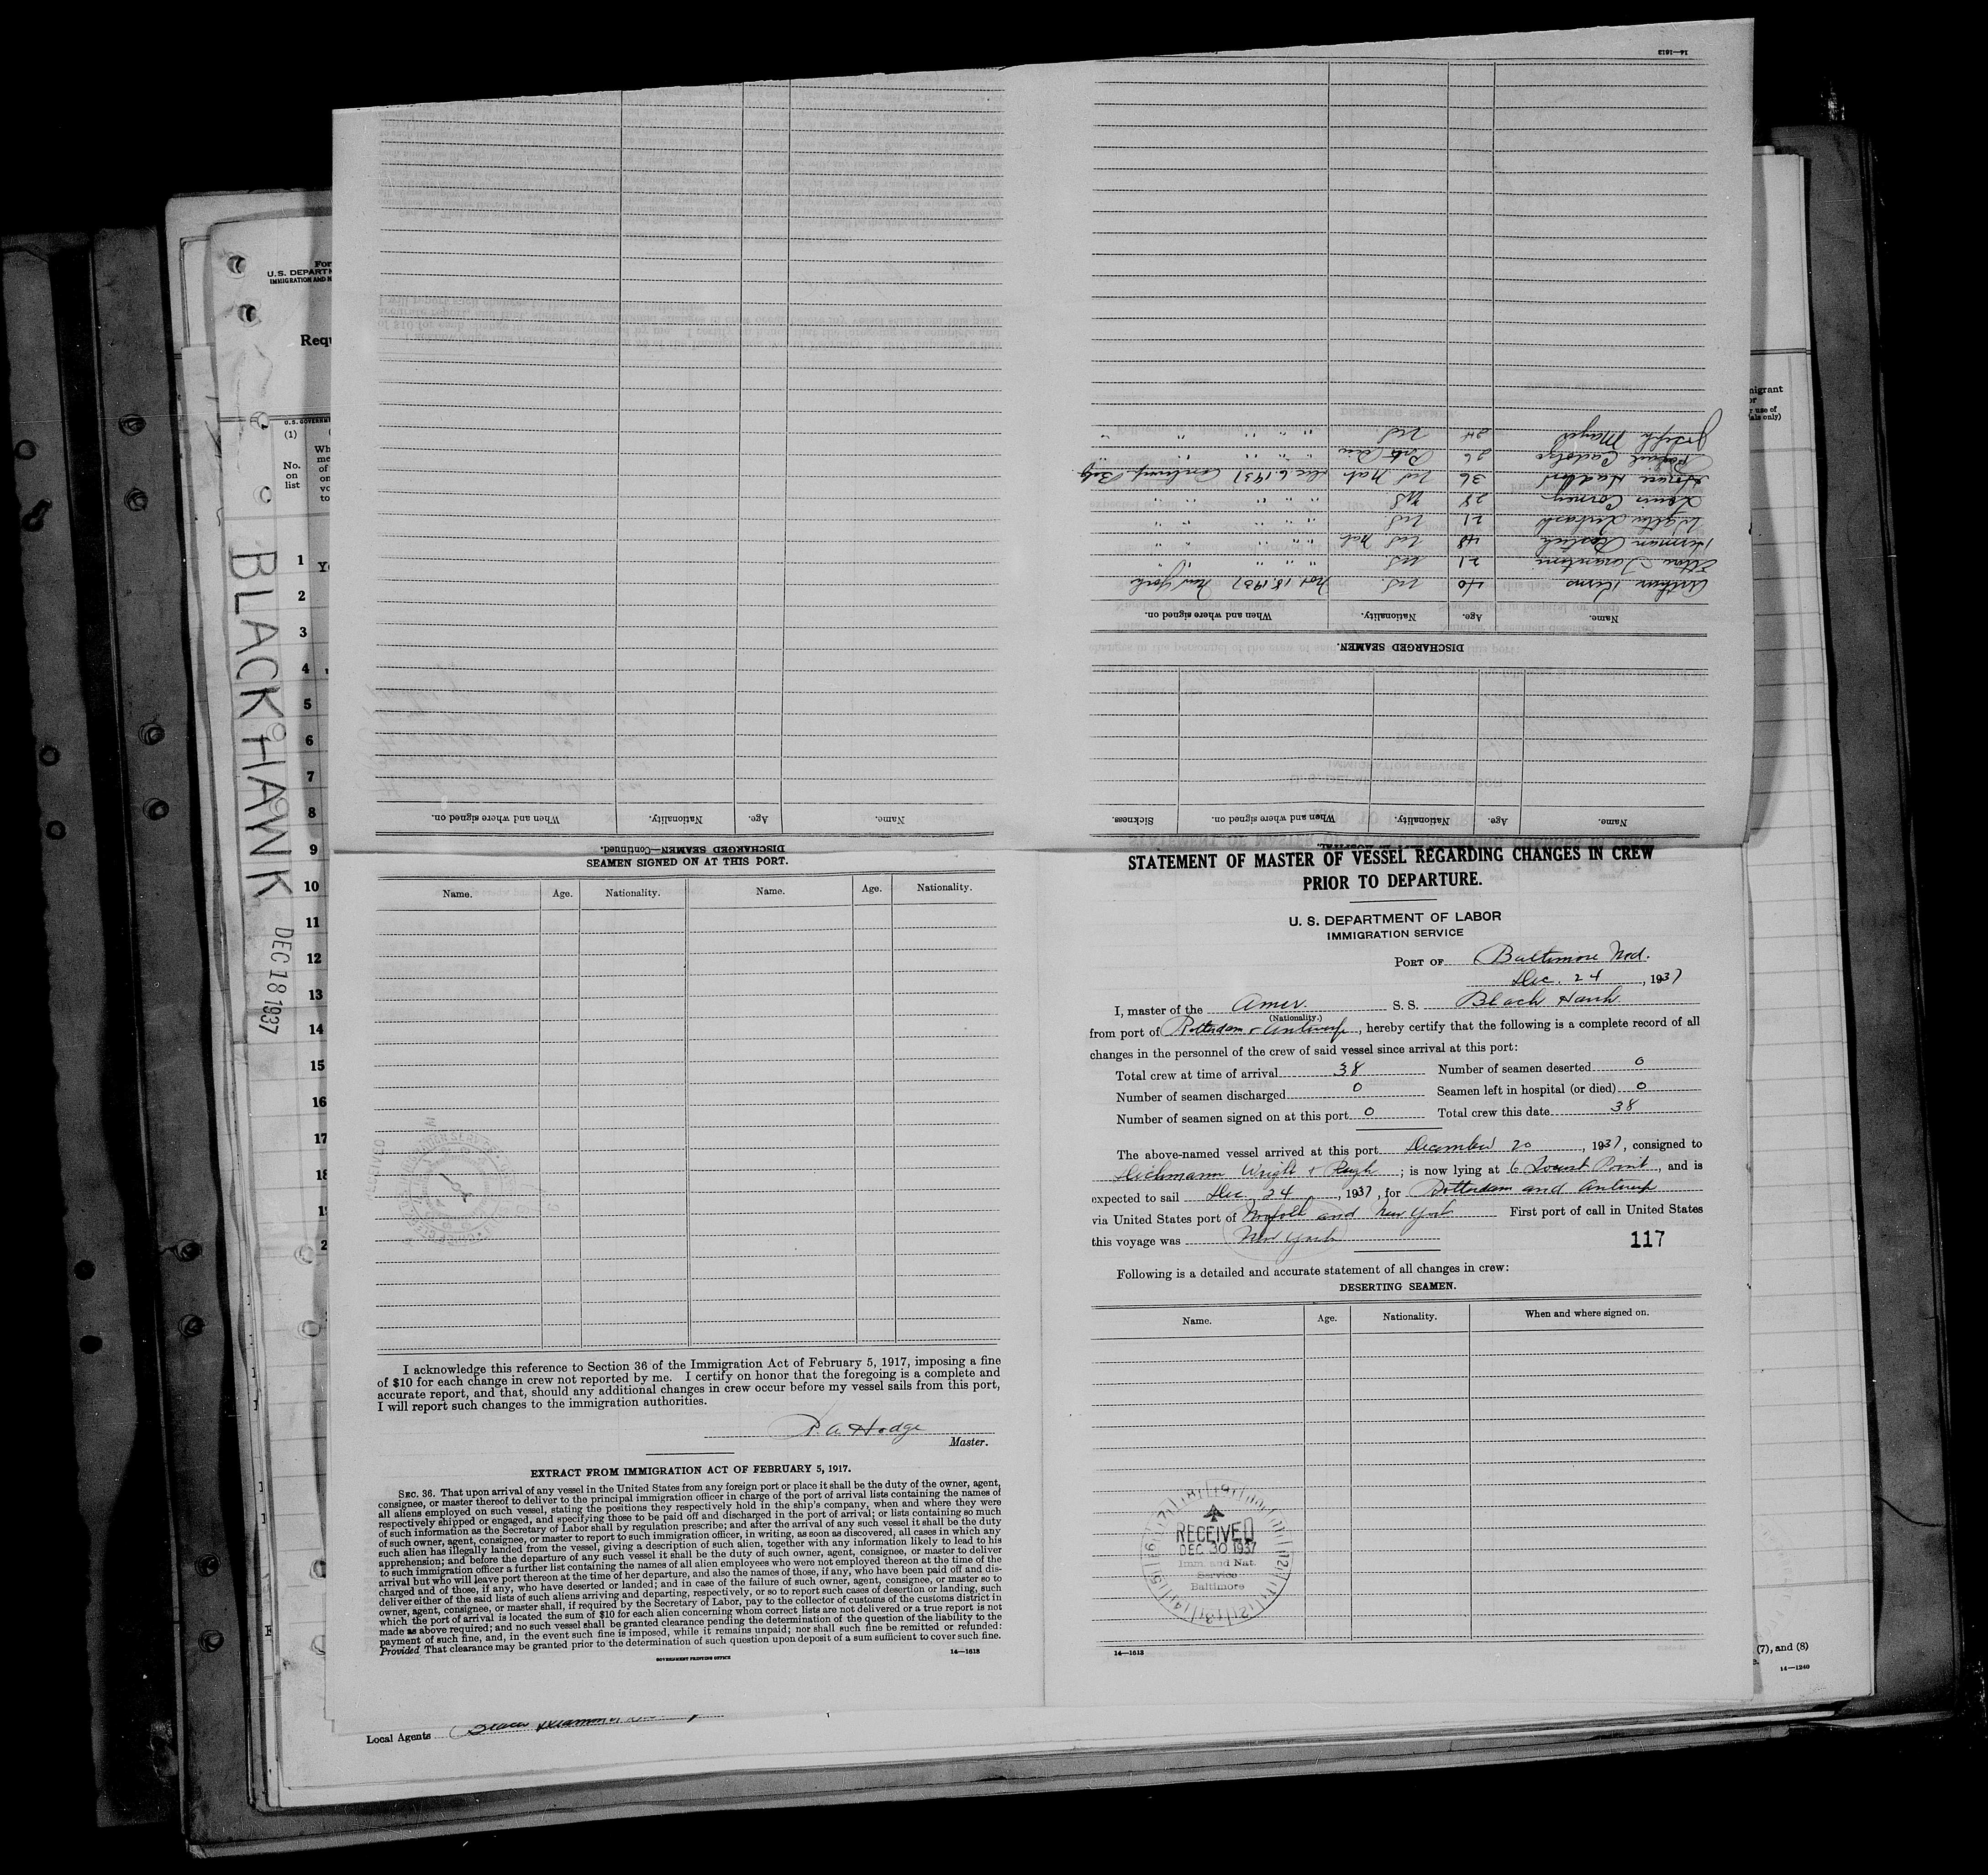 For
U. S. DEPARTM
IMMIGRATION AND N
Requ
U.S. GOVERNM
(1)
No.
on
list
Wh
me
of
on
vo
to
1
2
3
4
5
6
7
8
9
10
11
12
13
14
15
16
17
18
BLACK HAWK
DEC 18 1937
14—1613
DISCHARGED SEAMEN—Continued.
Name.
Age.
Nationality.
When and where signed on.
Name. Age. Nationality. When and where signed on. Sickness.
DISCHARGED SEAMEN.
Name. Age. Nationality. When and where signed on.
Arthur 40 U.S. Nov 18, 1937 New York
21 U.S. " " " "
Herman 48 U.S. Nat. " " " "
Walter 21 U.S. " " " "
Louis 28 U.S. " " " "
Horace 36 U.S. Nat. Dec. 6, 1937 Antwerp Belg
26 " " " "
Joseph 24 U.S. " " " "
SEAMEN SIGNED ON AT THIS PORT.
Name. Age. Nationality. Name. Age. Nationality.
I acknowledge this reference to Section 36 of the Immigration Act of February 5, 1917, imposing a fine
of $10 for each change in crew not reported by me. I certify on honor that the foregoing is a complete and
accurate report, and that, should any additional changes in crew occur before my vessel sails from this port,
I will report such changes to the immigration authorities.
A. Hodge
Master.
EXTRACT FROM IMMIGRATION ACT OF FEBRUARY 5, 1917.
SEC. 36. That upon arrival of any vessel in the United States from any foreign port or place it shall be the duty of the owner, agent,
consignee, or master thereof to deliver to the principal immigration officer in charge of the port of arrival lists containing the names of
all aliens employed on such vessel, stating the positions they respectively hold in the ship's company, when and where they were
respectively shipped or engaged, and specifying those to be paid off and discharged in the port of arrival; or lists containing so much
of such information as the Secretary of Labor shall by regulation prescribe; and after the arrival of any such vessel it shall be the duty
of such owner, agent, consignee, or master to report to such immigration officer, in writing, as soon as discovered, all cases in which any
such alien has illegally landed from the vessel, giving a description of such alien, together with any information likely to lead to his
apprehension; and before the departure of any such vessel it shall be the duty of such owner, agent, consignee, or master to deliver
to such immigration officer a further list containing the names of all alien employees who were not employed thereon at the time of the
arrival but who will leave port thereon at the time of her departure, and also the names of those, if any, who have been paid off and dis-
charged and of those, if any, who have deserted or landed; and in case of the failure of such owner, agent, consignee, or master so to
deliver either of the said lists of such aliens arriving and departing, respectively, or so to report such cases of desertion or landing, such
owner, agent, consignee, or master shall, if required by the Secretary of Labor, pay to the collector of customs of the customs district in
which the port of arrival is located the sum of $10 for each alien concerning whom correct lists are not delivered or a true report is not
made as above required; and no such vessel shall be granted clearance pending the determination of the question of the liability to the
payment of such fine, and, in the event such fine is imposed, while it remains unpaid; nor shall such fine be remitted or refunded:
Provided That clearance may be granted prior to the determination of such question upon deposit of a sum sufficient to cover such fine.
GOVERNMENT PRINTING OFFICE
14—1613
Local Agents
STATEMENT OF MASTER OF VESSEL REGARDING CHANGES IN CREW
PRIOR TO DEPARTURE.
U. S. DEPARTMENT OF LABOR
IMMIGRATION SERVICE
PORT OF Baltimore Md.
Dec. 24, 1937
I, master of the Amer. S. S. Black Hawk
(Nationality.)
from port of Rotterdam & Antwerp, hereby certify that the following is a complete record of all
changes in the personnel of the crew of said vessel since arrival at this port:
Total crew at time of arrival 38 Number of seamen deserted 0
Number of seamen discharged 0 Seamen left in hospital (or died) 0
Number of seamen signed on at this port 0 Total crew this date 38
The above-named vessel arrived at this port December 20, 1937, consigned to
Dichmann Wright & Pugh; is now lying at 6 Locust Point, and is
expected to sail Dec 24, 1937, for Rotterdam and Antwerp
via United States port of Norfolk and New York First port of call in United States
this voyage was New York
117
Following is a detailed and accurate statement of all changes in crew:
DESERTING SEAMEN.
Name. Age. Nationality. When and where signed on.
RECEIVED
DEC 30 1937
Imm. and Nat.
Service
Baltimore
14—1613
migrant
or
r use of
als only)
(7), and (8)
14—1240